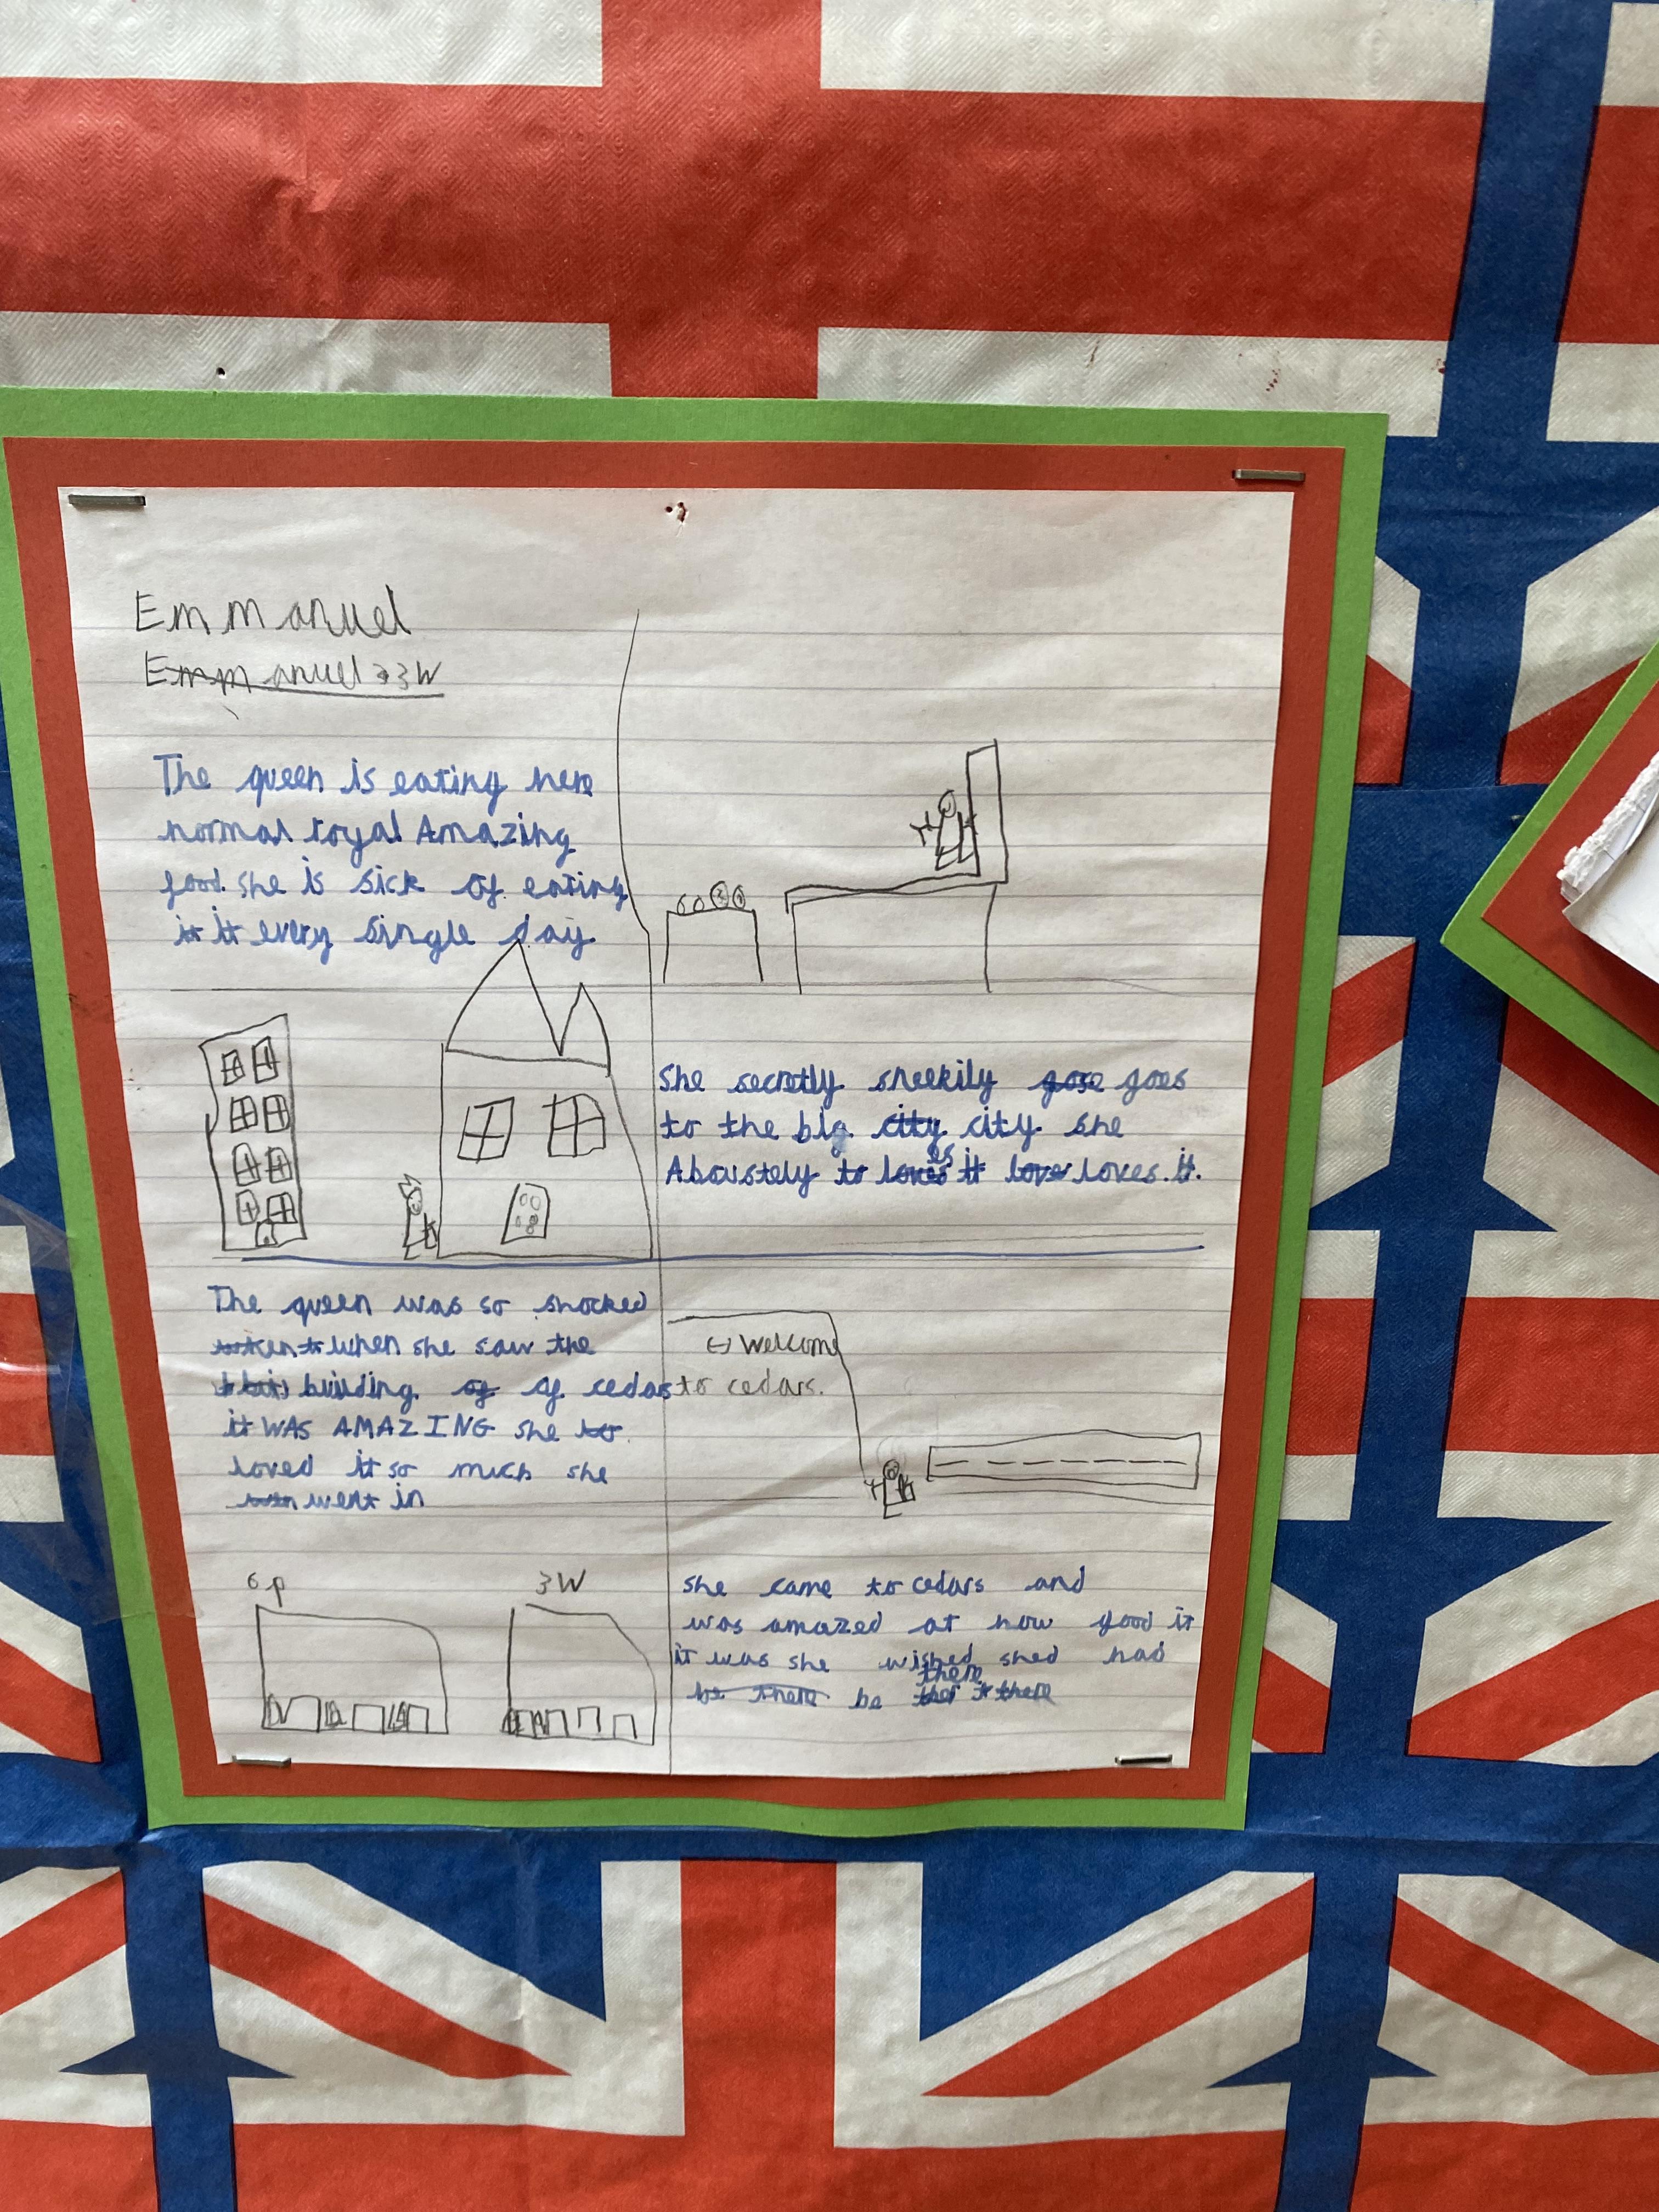 Emmanuel
Emmanuel 3W
The queen is eating here
normal royal Amazing
food. she is sick of eating
it it every single day
She secretly sneekily gose goes
to the big city city she
Aboustely to loves it love loves it.
The queen was so shocked
when she saw the
building of of cedars
it WAS AMAZING she to
loved it so much she
went in
Welcome
to cedars.
6p
3W
she came to cedars and
was amazed at how good it
it was she wished shed had
be there be there